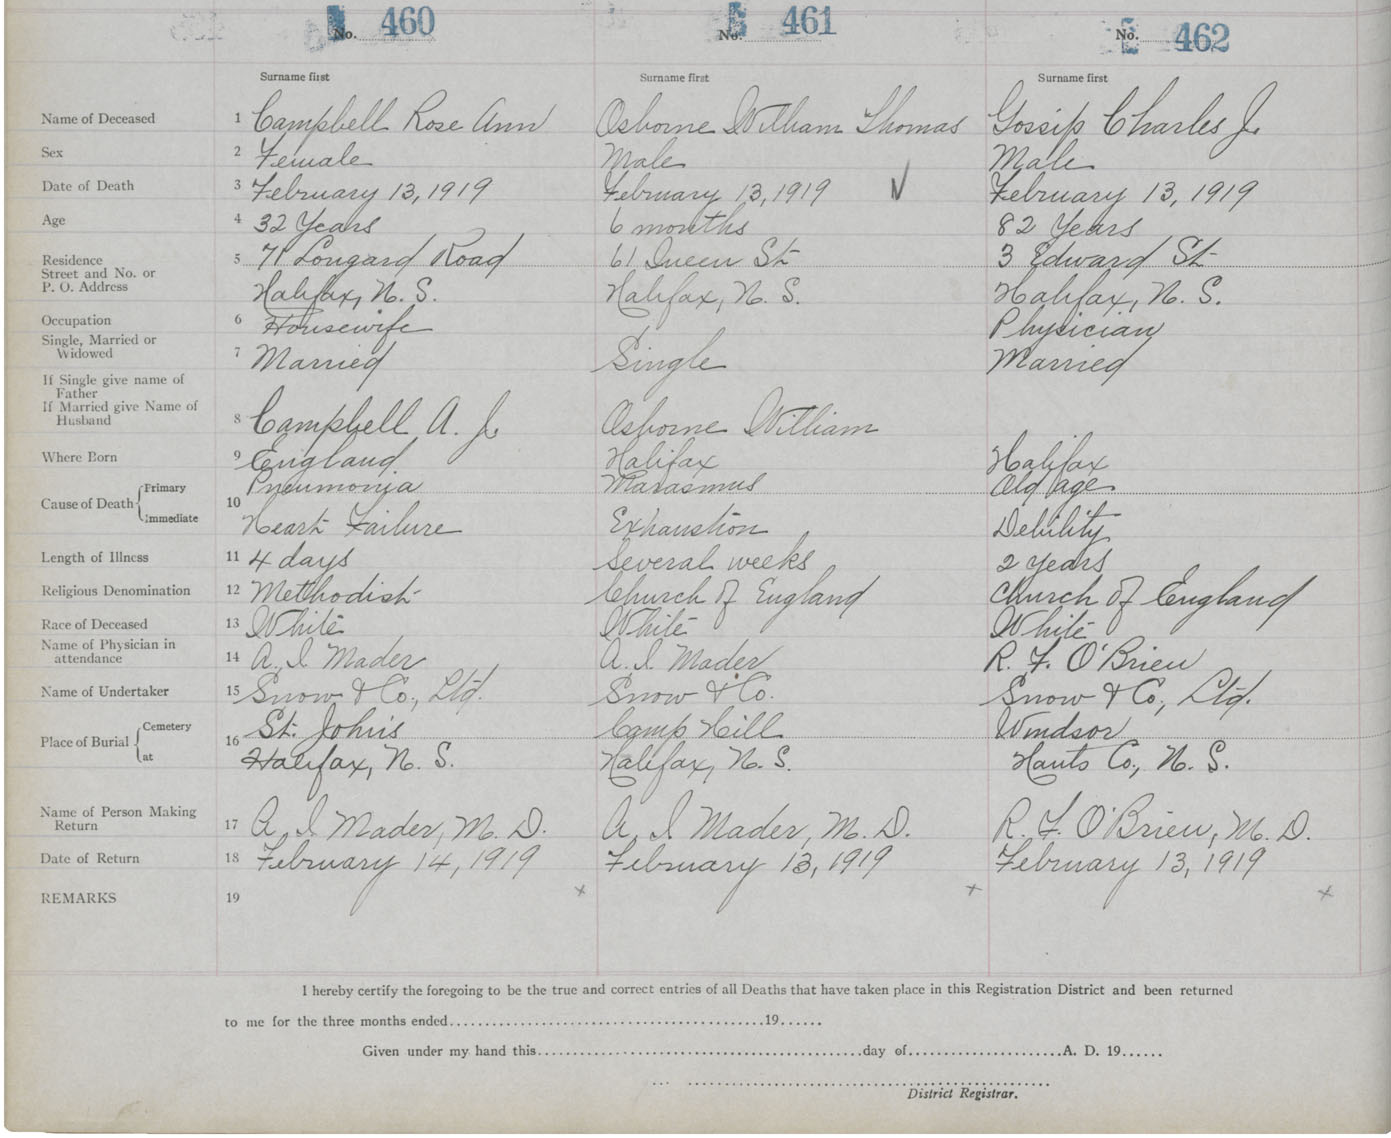 No. 460 No. 461 No. 462
Surname first Surname first Surname first
Name of Deceased 1 Campbell Rose Ann Osborne William Thomas Gossip Charles J.
Sex 2 Female Male Male
Date of Death 3 February 13, 1919 February 13, 1919 February 13, 1919
Age 4 32 Years 6 months 82 Years
Residence
Street and No. or 5 71 Longard Road 61 Queen St. 3 Edward St.
P. O. Address Halifax, N. S. Halifax, N. S. Halifax, N. S.
Occupation 6 Housewife Physician
Single, Married or
Widowed 7 Married Single Married
If Single give name of
Father
If Married give Name of
Husband 8 Campbell A. J. Osborne William
Where Born 9 England Halifax Halifax
Primary Pneumonia Marasmus Old age
Cause of Death 10
Immediate Heart Failure Exhaustion Debility
Length of Illness 11 4 days Several weeks 2 years
Religious Denomination 12 Methodist Church of England Church of England
Race of Deceased 13 White White White
Name of Physician in
attendance 14 A. I Mader A. I Mader R. F. O'Brien
Name of Undertaker 15 Snow & Co., Ltd. Snow & Co. Snow & Co., Ltd.
Cemetery St. John's Camp Hill Windsor
Place of Burial 16
at Halifax, N. S. Halifax, N. S. Hants Co., N. S.
Name of Person Making
Return 17 A. I Mader, M. D. A. I Mader, M. D. R. F. O'Brien, M. D.
Date of Return 18 February 14, 1919 February 13, 1919 February 13, 1919
REMARKS 19 x x x
I hereby certify the foregoing to be the true and correct entries of all Deaths that have taken place in this Registration District and been returned
to me for the three months ended..........................................19......
Given under my hand this..........................................day of......................A. D. 19......
District Registrar.